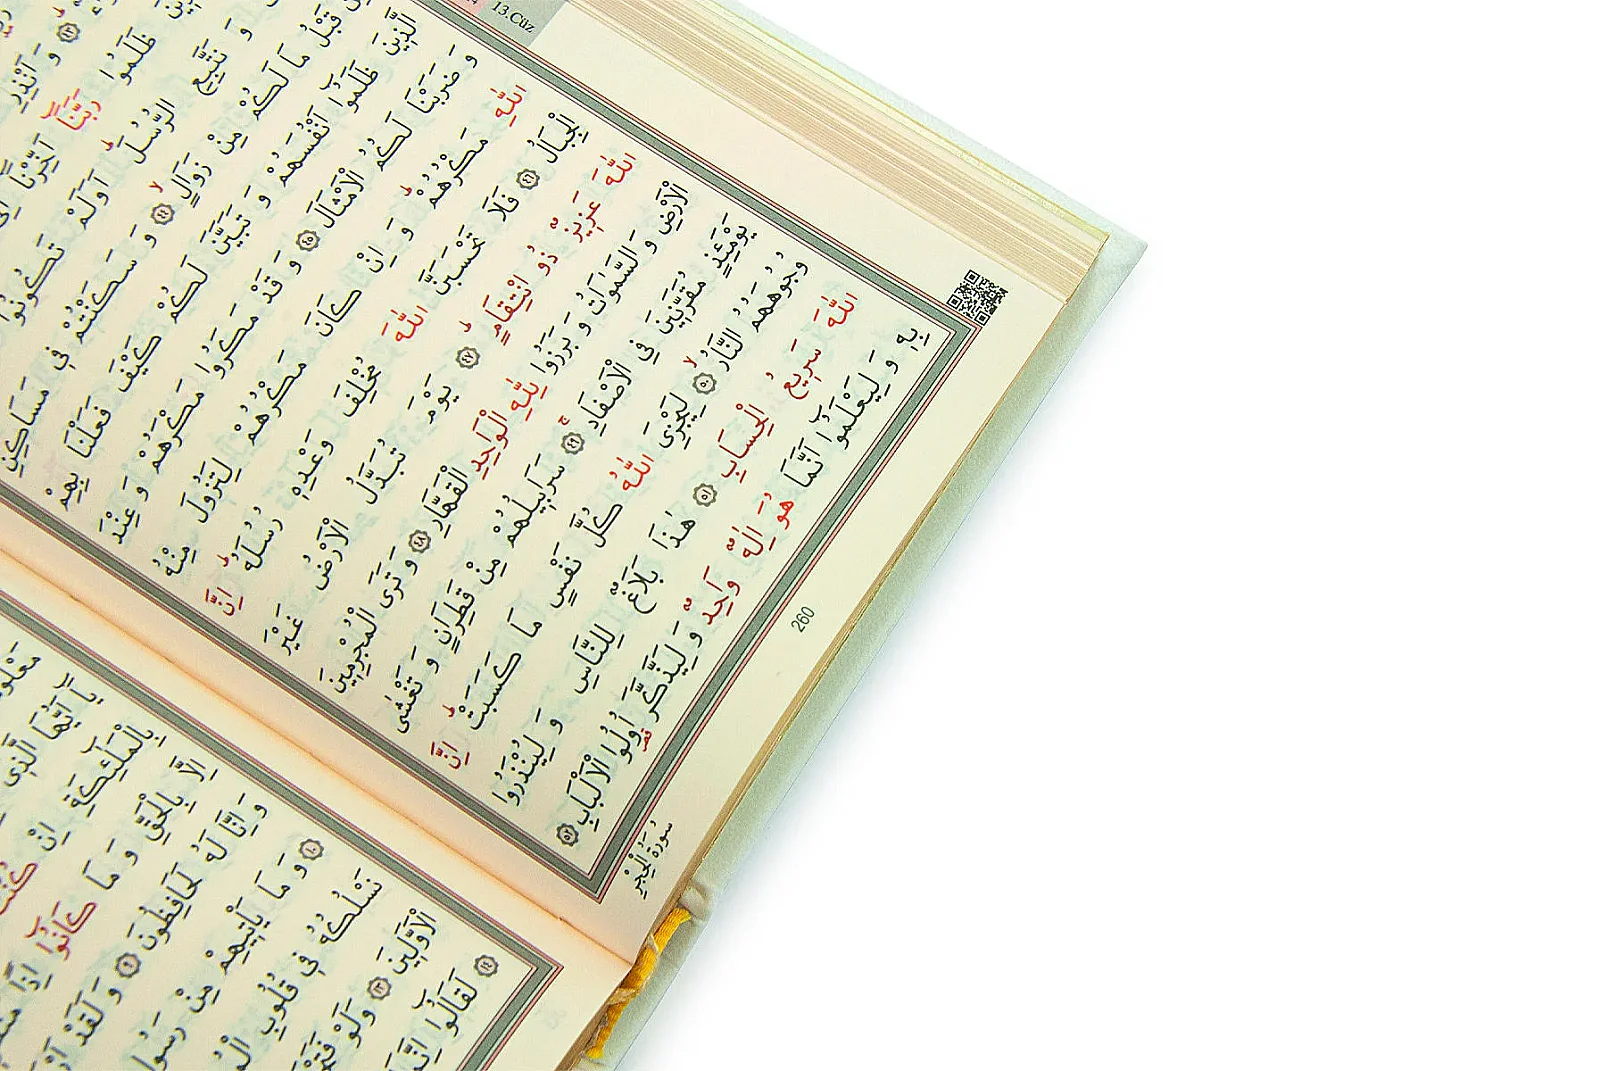 13.Cüz
٤٣ وَ اَنْذِرِ
ظَلَمُوا رَبَّنَٓا اَخِّرْنَٓا اِلٰٓى
وَ نَتَّبِعِ الرُّسُلَ اَوَلَمْ تَكُونُٓوا
قَبْلُ مَا لَكُمْ مِنْ زَوَالٍ ٤٤ وَ سَكَنْتُمْ فِي مَسَاكِنِ
الَّذِينَ ظَلَمُٓوا اَنْفُسَهُمْ وَ تَبَيَّنَ لَكُمْ كَيْفَ فَعَلْنَا بِهِمْ
وَ ضَرَبْنَا لَكُمُ الْاَمْثَالَ ٤٥ وَ قَدْ مَكَرُوا مَكْرَهُمْ وَ عِنْدَ
اللّٰهِ مَكْرُهُمْ وَ اِنْ كَانَ مَكْرُهُمْ لِتَزُولَ مِنْهُ
الْجِبَالُ ٤٦ فَلَا تَحْسَبَنَّ اللّٰهَ مُخْلِفَ وَعْدِهِ رُسُلَهُ اِنَّ
اللّٰهَ عَزِيزٌ ذُو انْتِقَامٍ ٤٧ يَوْمَ تُبَدَّلُ الْاَرْضُ غَيْرَ
الْاَرْضِ وَ السَّمٰوَاتُ وَ بَرَزُوا لِلّٰهِ الْوَاحِدِ الْقَهَّارِ ٤٨ وَ تَرَى الْمُجْرِمِينَ
يَوْمَئِذٍ مُقَرَّنِينَ فِي الْاَصْفَادِ ٤٩ سَرَابِيلُهُمْ مِنْ قَطِرَانٍ وَ تَغْشٰى
وُجُوهَهُمُ النَّارُ ٥٠ لِيَجْزِيَ اللّٰهُ كُلَّ نَفْسٍ مَا كَسَبَتْ اِنَّ
اللّٰهَ سَرِيعُ الْحِسَابِ ٥١ هٰذَا بَلَاغٌ لِلنَّاسِ وَ لِيُنْذَرُوا
بِهِ وَ لِيَعْلَمُٓوا اَنَّمَا هُوَ اِلٰهٌ وَاحِدٌ وَ لِيَذَّكَّرَ اُولُوا الْاَلْبَابِ ٥٢
260
سُورَةُ الْحِجْرِ
مَعْلُومٌ
يَٓا اَيُّهَا الَّذِي
بِالْمَلٰٓئِكَةِ اِنْ كُنْتَ
اِلَّا بِالْحَقِّ وَ مَا كَانُٓوا اِذًا
وَ اِنَّا لَهُ لَحَافِظُونَ ٩ وَ لَقَدْ
١٠ وَ مَا يَأْتِيهِمْ مِنْ رَسُولٍ
نَسْلُكُهُ فِي قُلُوبِ
الْاَوَّلِينَ ١٣ وَلَوْ
١٤ لَقَالُٓوا اِنَّمَا